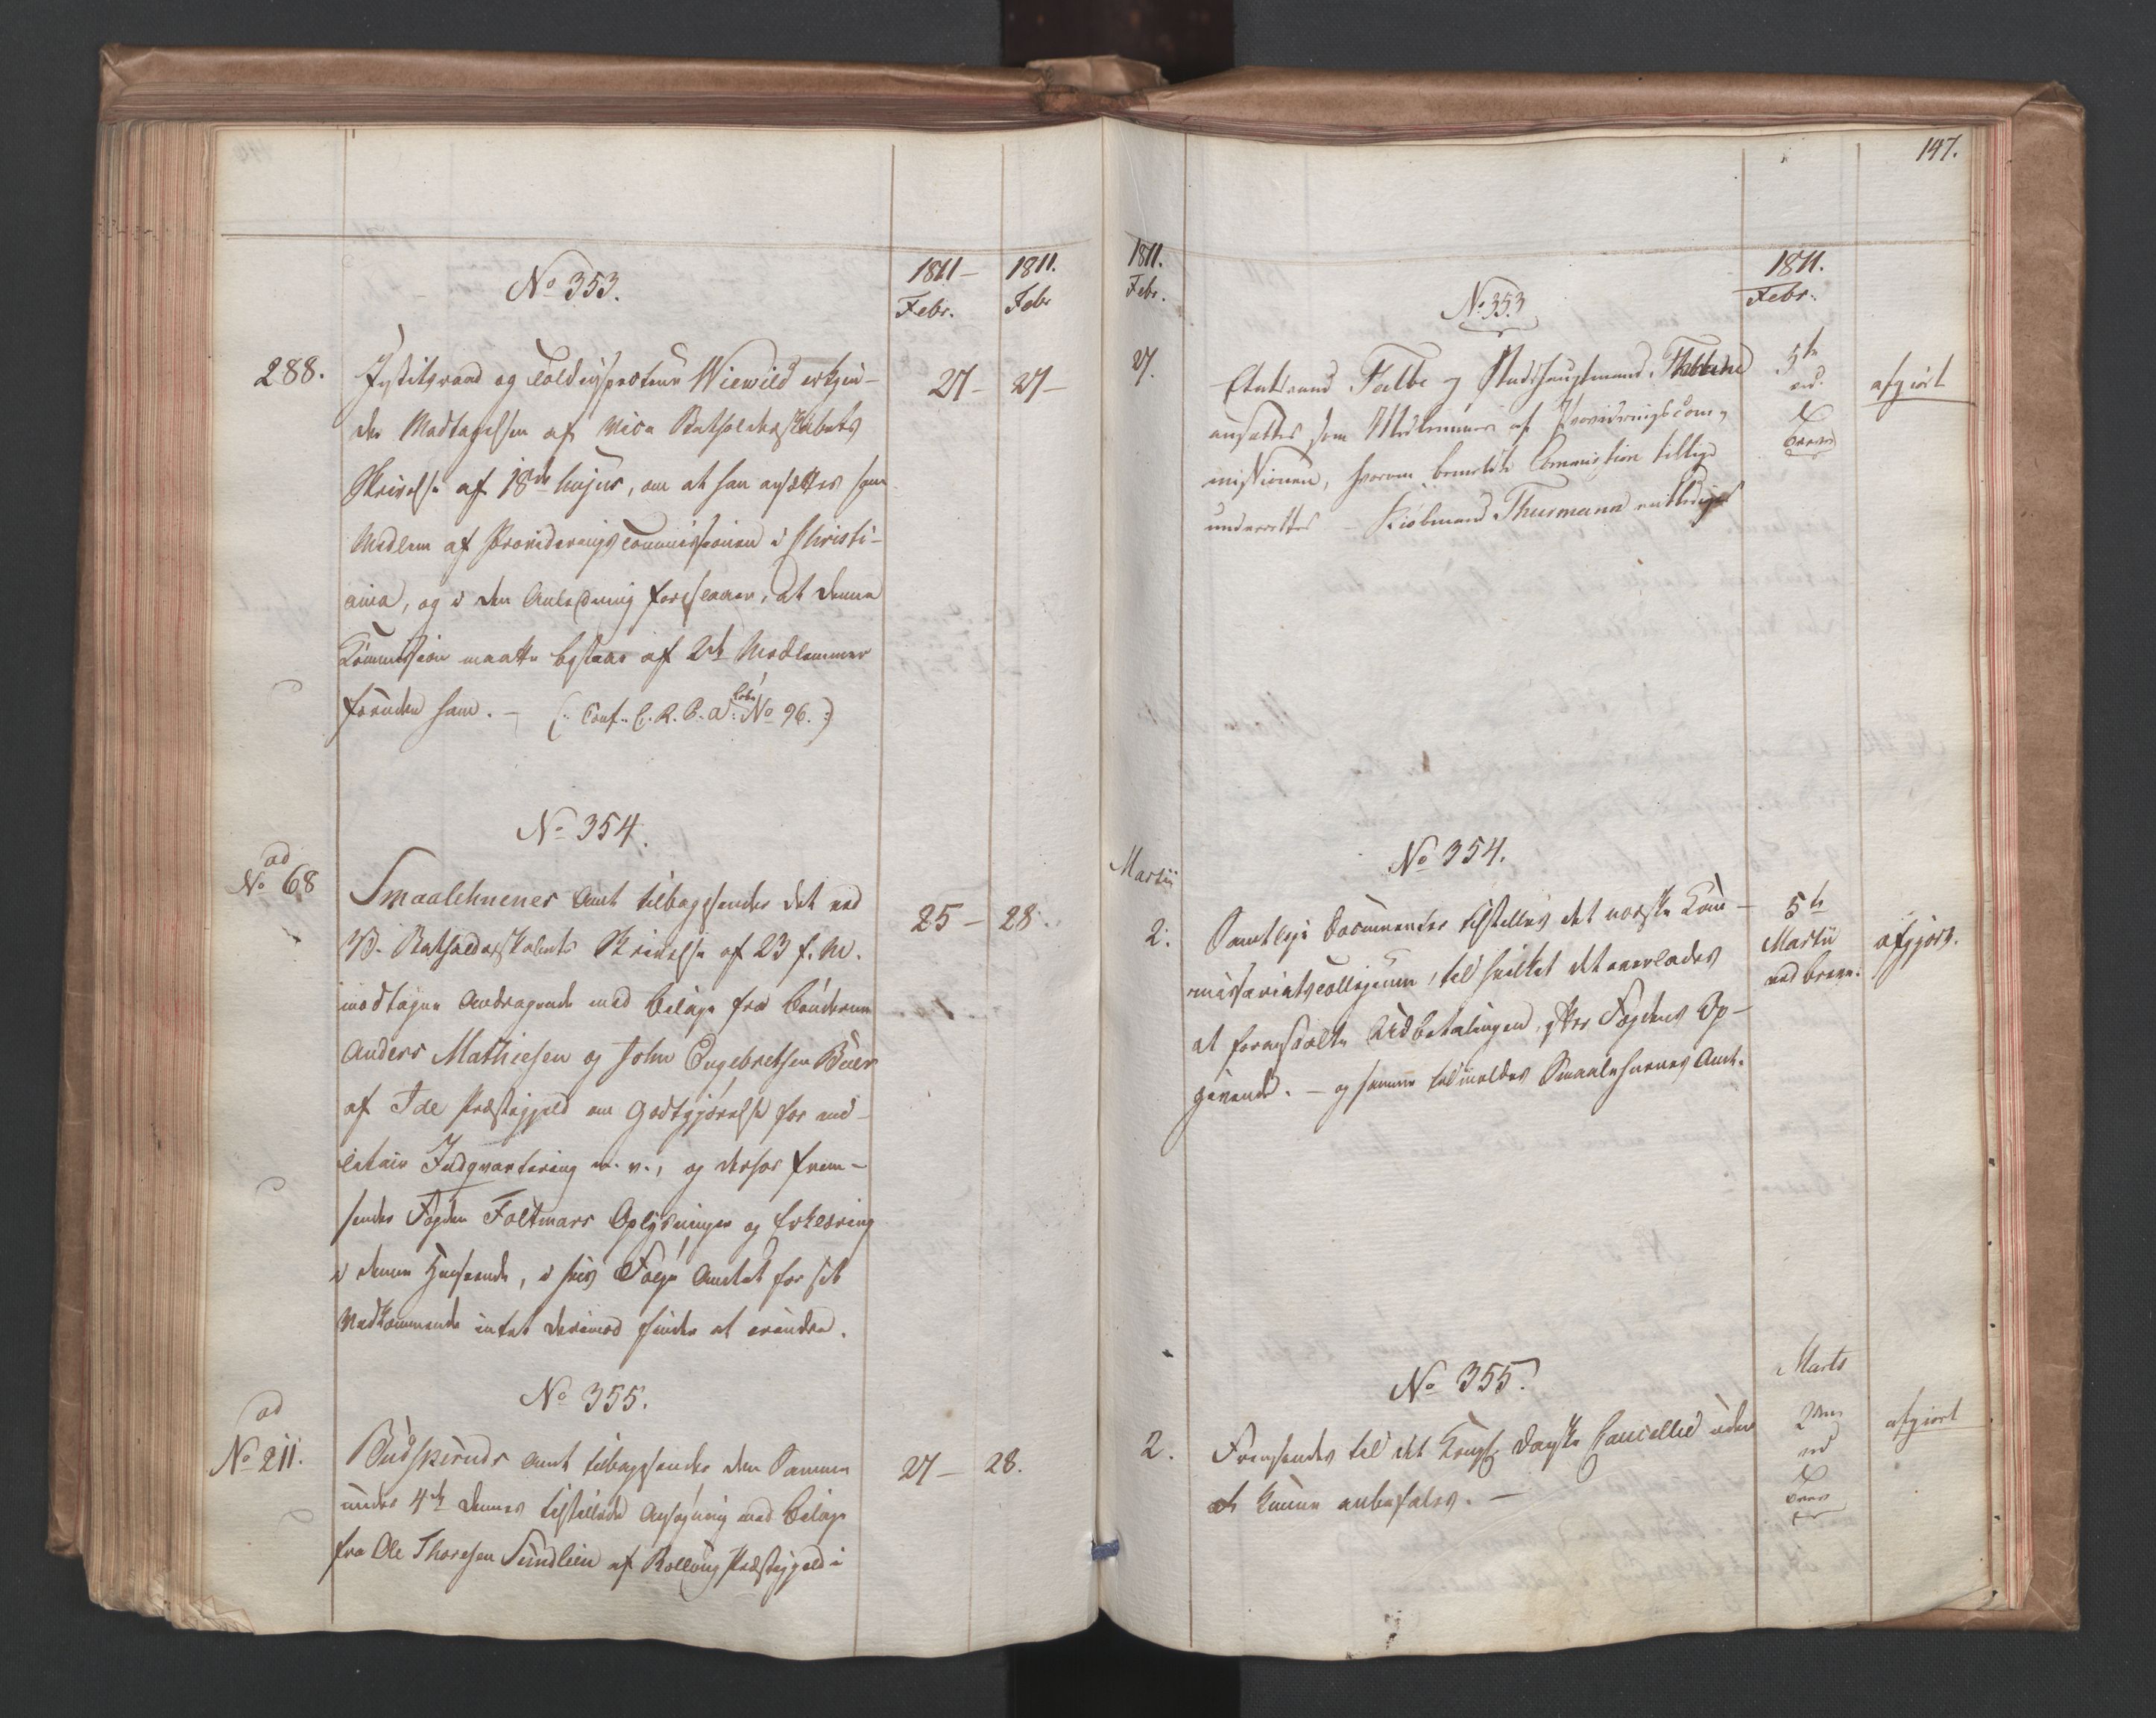 No 353.
1811 –
Febr.
1811.
Febr
288.
Justitsraad og Toldinspecteur Wiewild erkjen-
der Modtagelsen af Vice Statholderskabets
Skrivelse af 18de hujus, om at han ansættes som
Medlem af Provideringscommissionen i Christi-
ania, og i den Anledning foreslaaer, at denne
Commission maatte bestaae af 2de Medlemmer
foruden ham. – (: Conf. C. R. P. a: No 96. :)
27 –
27 –
No 354.
ad
No 68
Smaalehnenes Amt tilbagesender det ved
V. Statholderskabets Skrivelse af 23 f. M.
modtagne Andragende med Bilage fra Bønderne
Anders Mathiesen og John Engebretsen Buer
af Ide Præstegjeld om Godtgjørelse for mi-
litair Indqvartering m. v., og derhos frem-
sender Fogden Foltmars Oplysninger og Erklæring
i denne Henseende, i hvis Følge Amtet for sit
Vedkommende intet derimod finder at erindre.
25 –
28.
No 355.
ad
No 211.
Budskeruds Amt tilbagesender den Samme
under 4de dennes tilstillede Ansøgning med Bilage
fra Ole Thoresen Sundlien af Rollaug Præstegjeld i
27 –
28.
147.
1811.
Febr.
No 353
1811.
Febr.
27.
Etatsraad Falbe og Stadshauptmand
ansættes som Medlemmer af Provideringscom-
missionen, hvorom bemeldte Commission tillige
underrettes – Kiøbmand Thurmann entlediges
5te
ved
Breve
afgiört
No 354.
Martii
2.
Samtlige Documenter tilstilles det norske Com-
missariatscollegium, til hvilket det overlades
at foranstalte Udbetalingen, efter Fogdens Op-
givende. – og samme tilmeldes Smaalehnenes Amt.
5te
Martii
ved breve.
afgjort.
No 355.
2.
Fremsendes til det Kongl. Danske Cancellie uden
at kunne anbefales. –
Marts
2den
ved
Brev
afgiort